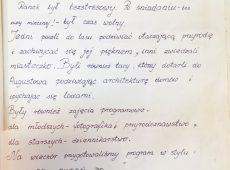 Ranek był bezstresowy. Po śniadaniu - bez
był czas wolny
Jedni poszli do lasu podziwiać otaczającą przyrodę
i zachwycać się jej pięknem, inni zwiedzali
miasteczko. Byli również tacy, którzy dotarli do
Augustowa podziwiając architekturę domów i
opychając się lodami.
Były również zajęcia programowe:
dla młodszych - fotografika i przyrodoznawstwo,
dla starszych - dziennikarstwo.
Na wieczór przygotowaliśmy program w stylu